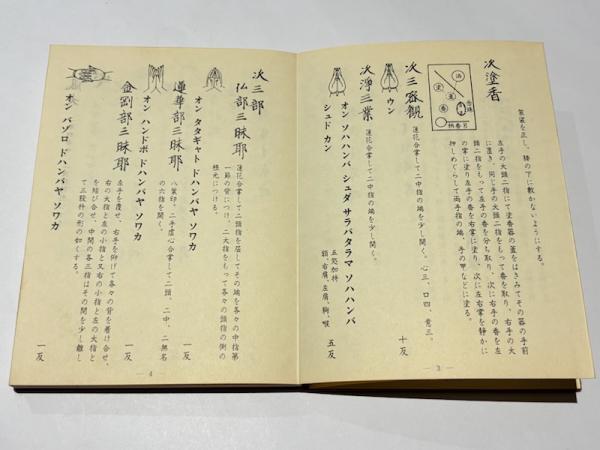 次塗香
洒
塗
灑
香
念珠
柄香呂
袈裟を正し、膝の下に敷かないようにする。
左手の大頭二指にて塗香器の蓋をはさみてその器の手前
に置き、同じ手の大頭二指をもって香を取り、右手の大
頭二指をもって左手の香を分ち取り、次に右手の香を左
の掌に塗り左手の香を右掌に塗り、次に左右掌を静かに
押しめぐらして両手指の端、手の甲などに塗る。
次三密観
蓮花合掌して二中指の端を少し開く。心三、口四、意三、
ウン
十反
次浄三業
蓮花合掌して二中指の端を少し開く。
オン ソハハンバ シュダ サラバタラマ ソハハンバ
シュド カン
五処加持
額、右肩、左肩、胸、喉
五反
― 3 ―
次三部
仏部三昧耶
蓮花合掌して二頭指を屈してその端を各々の中指第
一節の背につけ、二大指をもって各々の頭指の側の
根元につける。
オン タタギャト ドハンバヤ ソワカ
一反
蓮華部三昧耶
八葉印、二手虚心合掌して二頭、二中、二無名
の六指を開く。
オン ハンドボ ドハンバヤ ソワカ
一反
金剛部三昧耶
左手を覆せ、右手を仰げて各々の背を着け合せ、
右の大指と左の小指と又右の小指と左の大指と
を結び合せ、中間の各三指はその間を少し離し
て三股杵の形の如くする。
オン バゾロ ドハンバヤ ソワカ
一反
― 4 ―